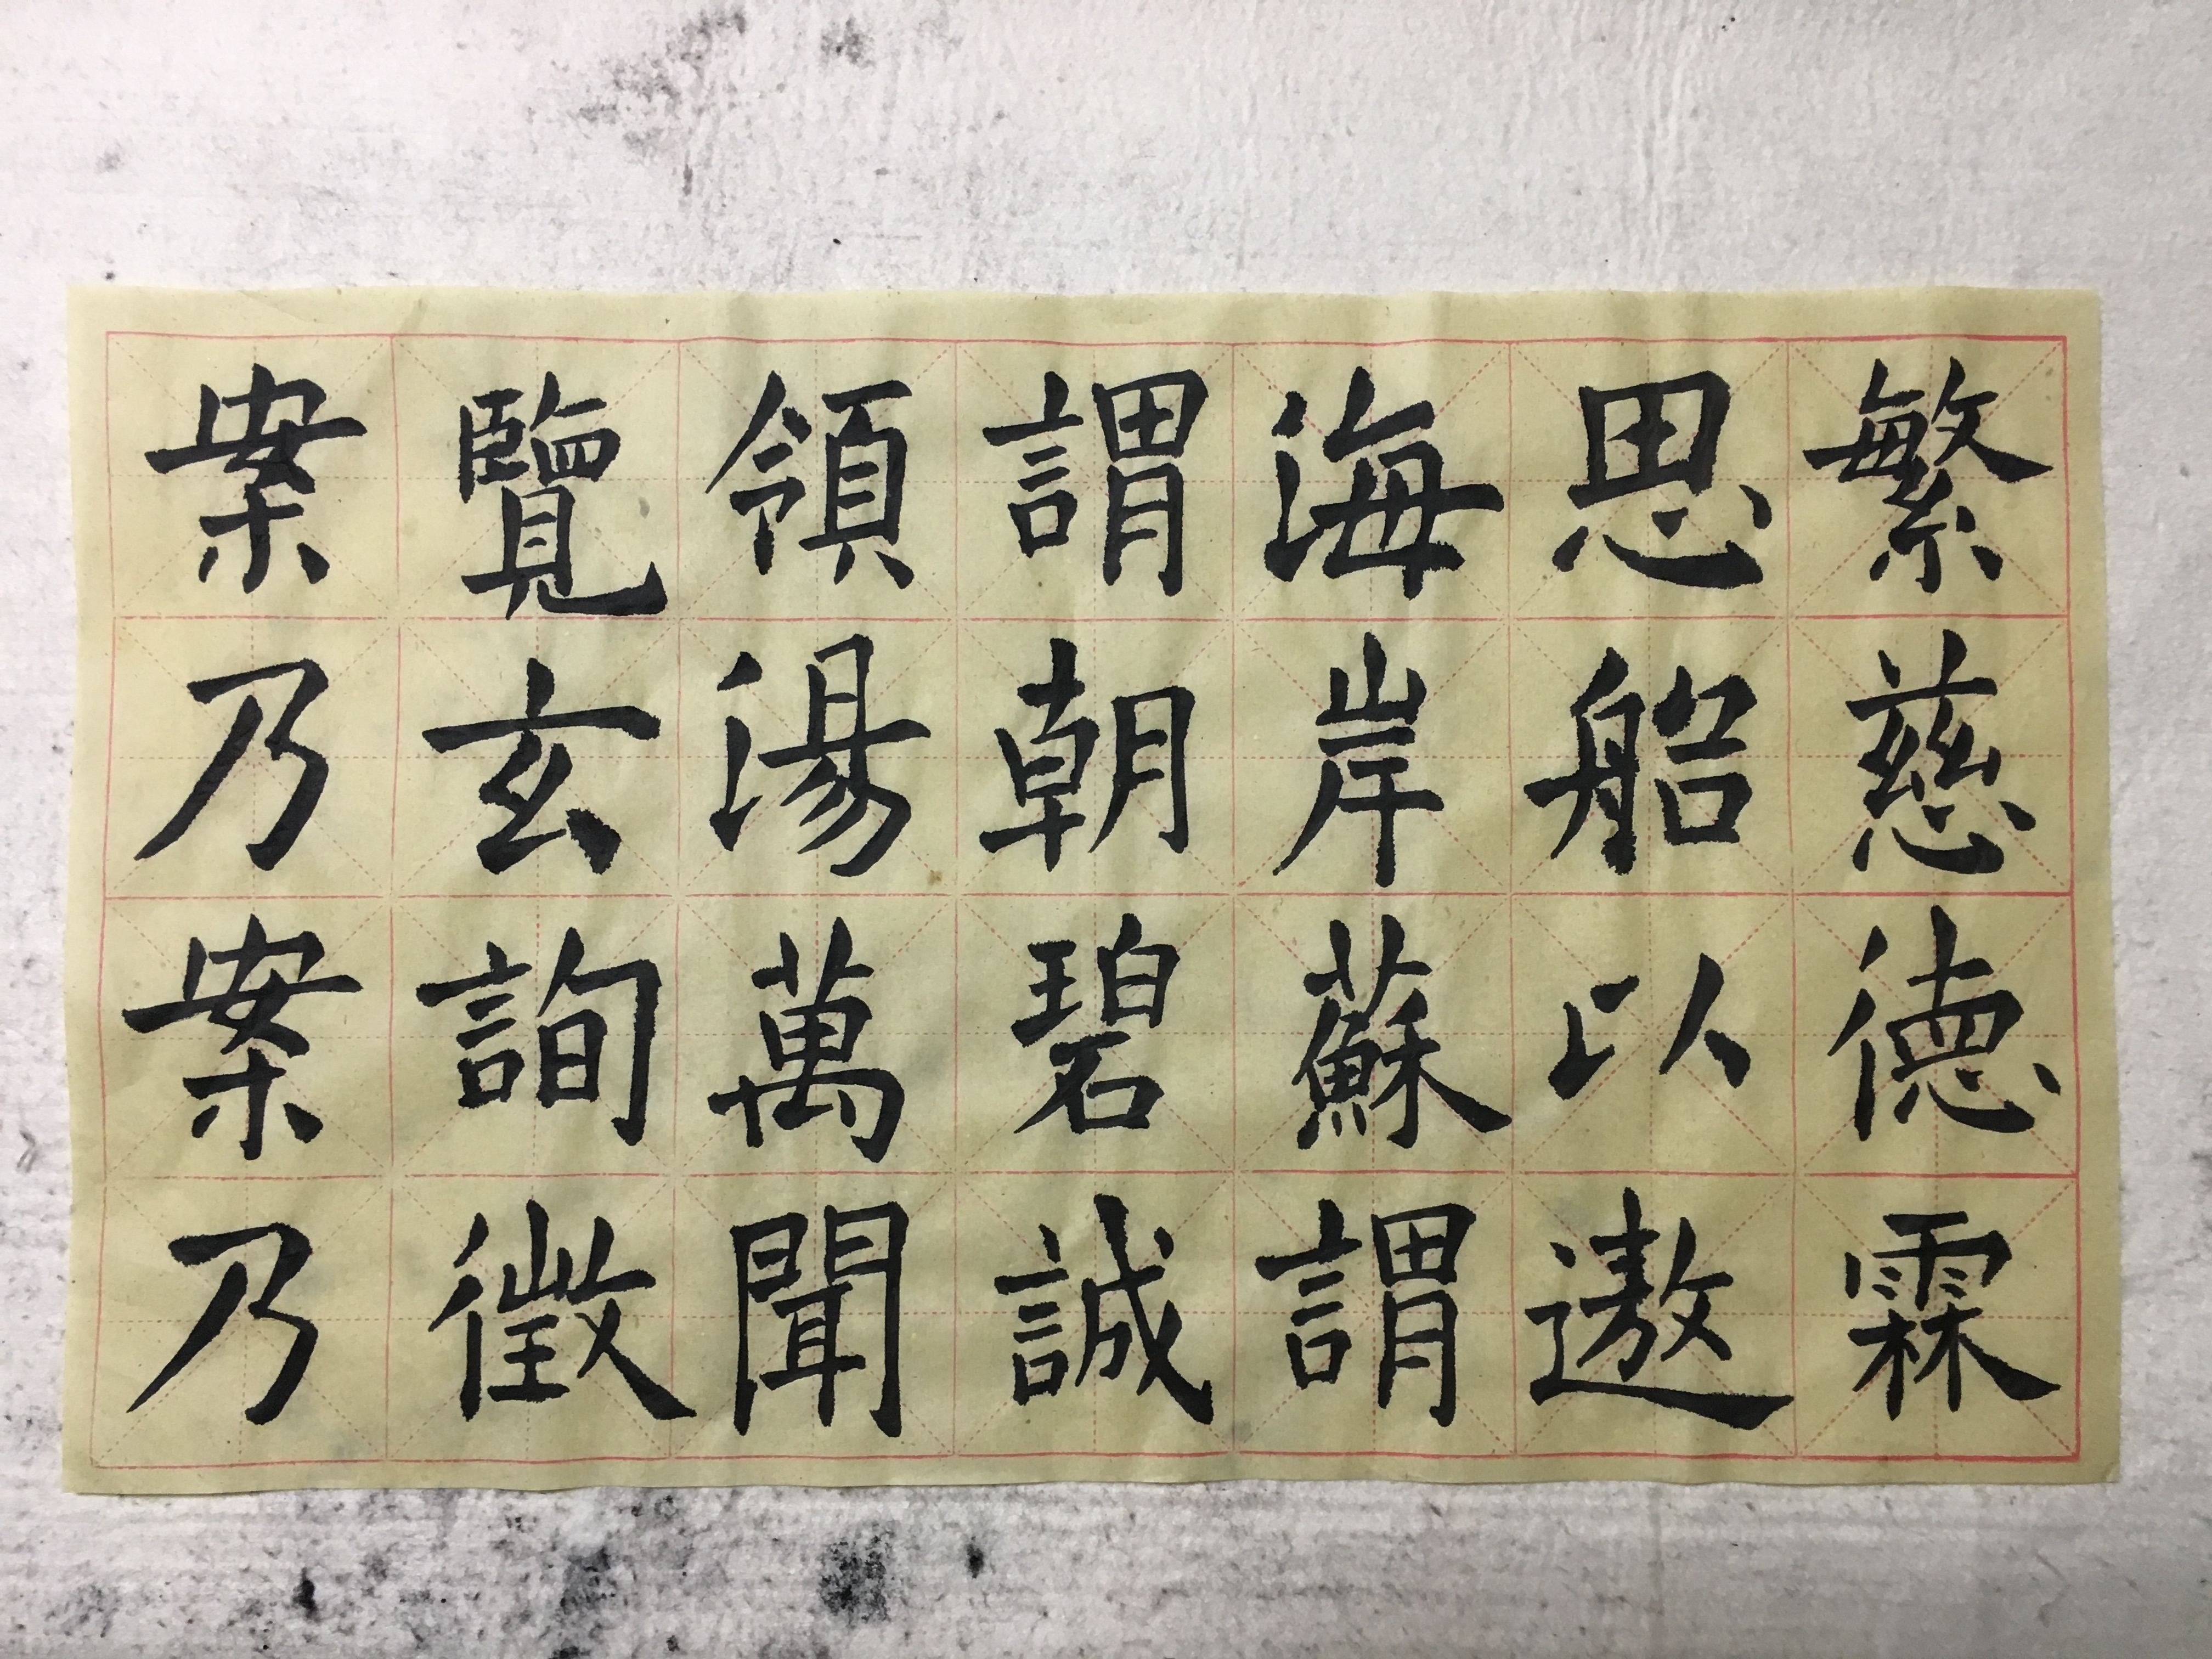 繁慈德霖
思船以遨
海岸蘇謂
謂朝碧誠
領湯萬聞
覽玄詢徵
案乃案乃